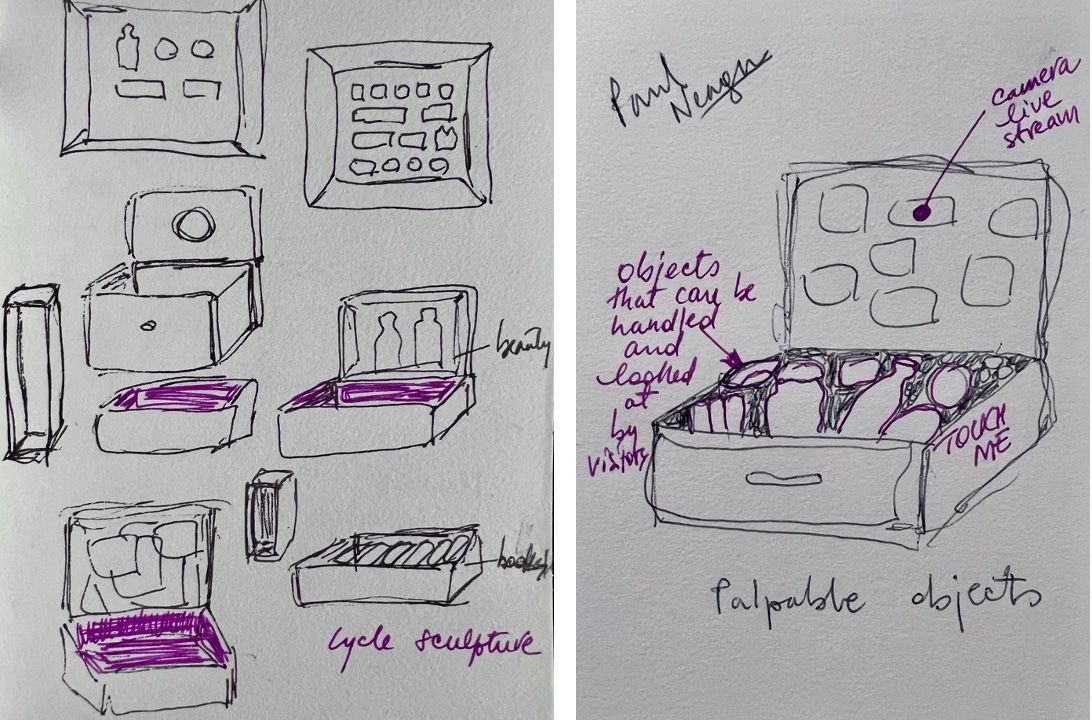 beauty
books
Cycle sculpture
Paul
Neagu
camera
live
stream
objects
that can be
handled
and
looked
at
by
visitors
TOUCH
ME
Palpable objects